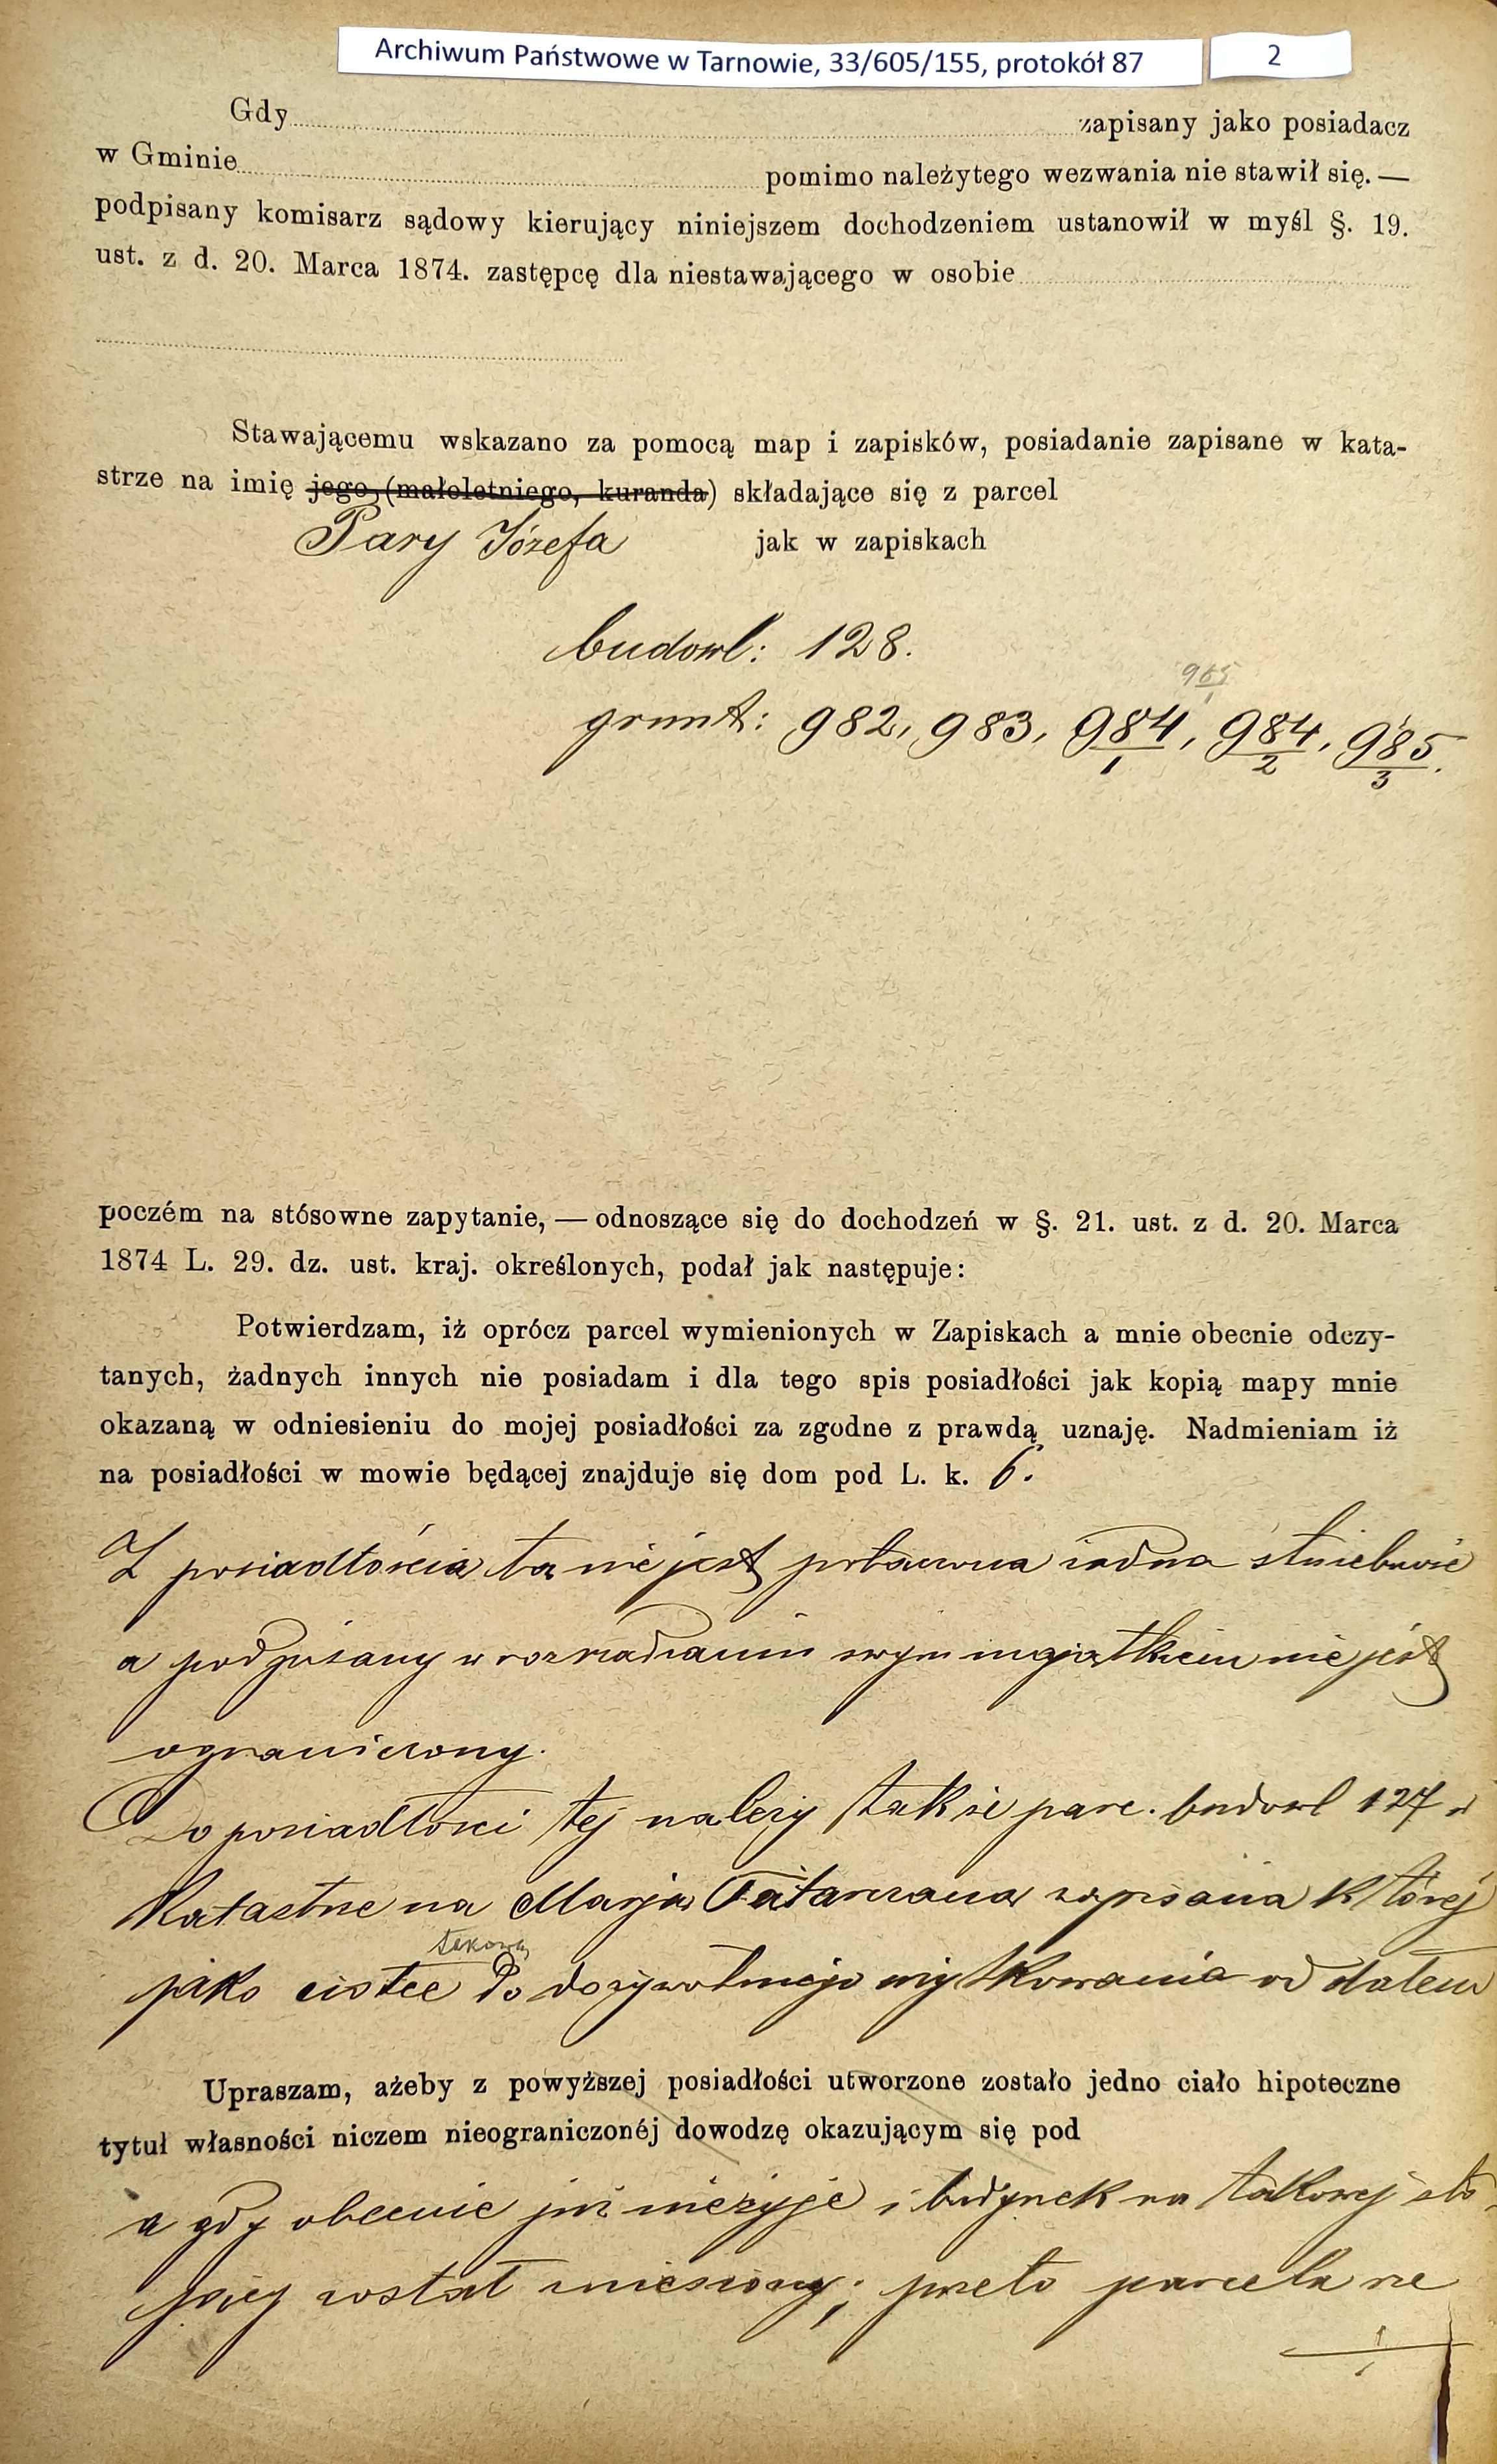 Archiwum Państwowe w Tarnowie, 33/605/155, protokół 87 2
Gdy zapisany jako posiadacz
w Gminie pomimo należytego wezwania nie stawił się. —
podpisany komisarz sądowy kierujący niniejszem dochodzeniem ustanowił w myśl §. 19.
ust. z d. 20. Marca 1874. zastępcę dla niestawającego w osobie
Stawającemu wskazano za pomocą map i zapisków, posiadanie zapisane w kata-
strze na imię jego, (małoletniego, kuranda) składające się z parcel
Pary Józefa jak w zapiskach
budowl: 128.
965/1
grunt: 982, 983, 984/1, 984/2, 985/3.
poczém na stósowne zapytanie, — odnoszące się do dochodzeń w §. 21. ust. z d. 20. Marca
1874 L. 29. dz. ust. kraj. określonych, podał jak następuje:
Potwierdzam, iż oprócz parcel wymienionych w Zapiskach a mnie obecnie odczy-
tanych, żadnych innych nie posiadam i dla tego spis posiadłości jak kopią mapy mnie
okazaną w odniesieniu do mojej posiadłości za zgodne z prawdą uznaję. Nadmieniam iż
na posiadłości w mowie będącej znajduje się dom pod L. k. 6.
Z posiadłością tą nie jest połączona żadna służebność
a podpisany w rozrządzaniu swym majątkiem nie jest
ograniczony.
Do posiadłości tej należy także parc. budowl 127 w
Katastrze na Maryą zapisana której
takową
jako ciotce do dożywotniego użytkowania oddałem
Upraszam, ażeby z powyższej posiadłości utworzone zostało jedno ciało hipoteczne
tytuł własności niczem nieograniczonéj dowodzę okazującym się pod
a gdy obecnie już nieżyje i budynek na takowej sto-
jący został zniesiony; przeto parcela ze